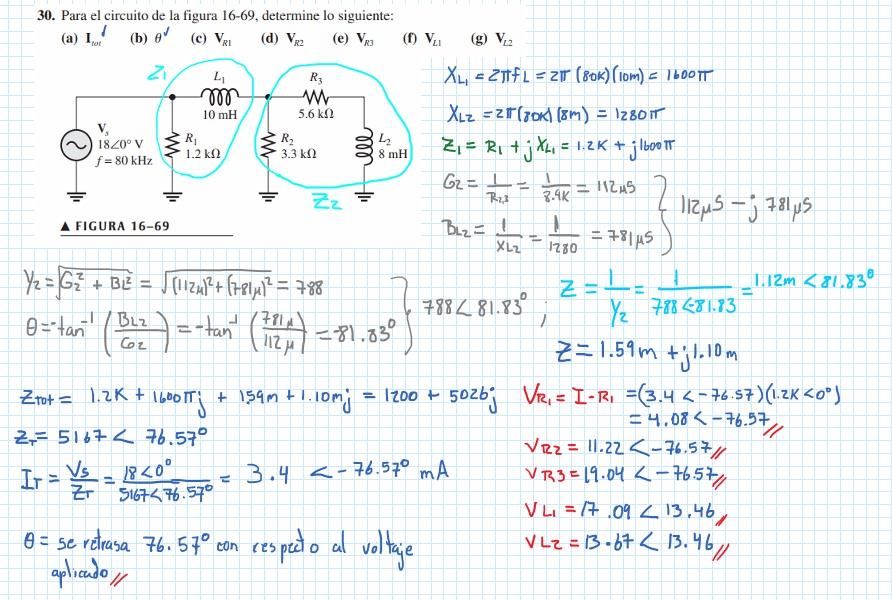 30. Para el circuito de la figura 16-69, determine lo siguiente:
(a) Itot (b) θ (c) VR1 (d) VR2 (e) VR3 (f) VL1 (g) VL2
Z1
L1
10 mH
R3
5.6 kΩ
Vs
18∠0° V
f = 80 kHz
R1
1.2 kΩ
R2
3.3 kΩ
L2
8 mH
Z2
▲ FIGURA 16-69
XL1 = 2πfL = 2π (80K)(10m) = 1600π
XL2 = 2π(80K)(8m) = 1280π
Z1 = R1 + jXL1 = 1.2K + j1600π
G2 = 1/R2,3 = 1/8.9K = 112μS
BL2 = 1/XL2 = 1/1280 = 781μS
112μS - j 781μS
Y2 = √G2² + BL² = √(112μ)² + (781μ)² = 788
θ = -tan⁻¹ (BL2/G2) = -tan⁻¹ (781μ/112μ) = -81.83°
788∠81.83° ;
Z = 1/Y2 = 1/788∠81.83 = 1.12m ∠81.83°
Z = 1.59m + j1.10m
Ztot = 1.2K + 1600πj + 159m + 1.10mj = 1200 + 5026j
ZT = 5167 ∠ 76.57°
IT = Vs/ZT = 18∠0°/5167∠76.57° = 3.4 ∠-76.57° mA
θ = se retrasa 76.57° con respecto al voltaje
aplicado
VR1 = I · R1 = (3.4 ∠-76.57)(1.2K∠0°)
= 4.08∠-76.57
VR2 = 11.22∠-76.57
VR3 = 19.04∠-76.57
VL1 = 17.09∠13.46
VL2 = 13.67∠13.46